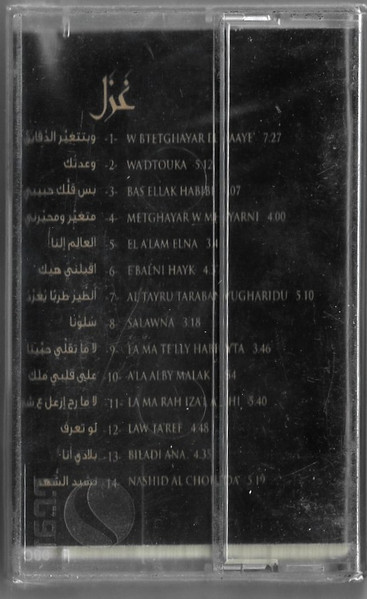 غزل
وبتتغير الدقايق -1- W BTETGHAYAR EL DAAYE' 7:27
وعدتك -2- WADTOUKA 5:12
بس قلك حبيبي -3- BAS ELLAK HABIBI :07
متغير ومحيرني -4- METGHAYAR W MHAYARNI 4:00
العالم إلنا -5- EL A'LAM ELNA 3:4
اقبلني هيك -6- E'BALNI HAYK 4:3
الطير طربا يغرد -7- AL TAYRU TARABAN YUGHARIDU 5:10
سلونا -8- SALAWNA 3:18
لا ما تقلي حبيتا -9- LA MA TE'LLY HABBAYTA 3.46
على قلبي ملك -10- A'LA ALBY MALAK :34
لا ما رح إزعل ع -11- LA MA RAH IZA'L A 5.40
لو تعرف -12- LAW TA'REF 4:48
بلادي أنا -13- BILADI ANA 4.35
نشيد الشهد -14- NASHID AL CHOUHADA' 5:19